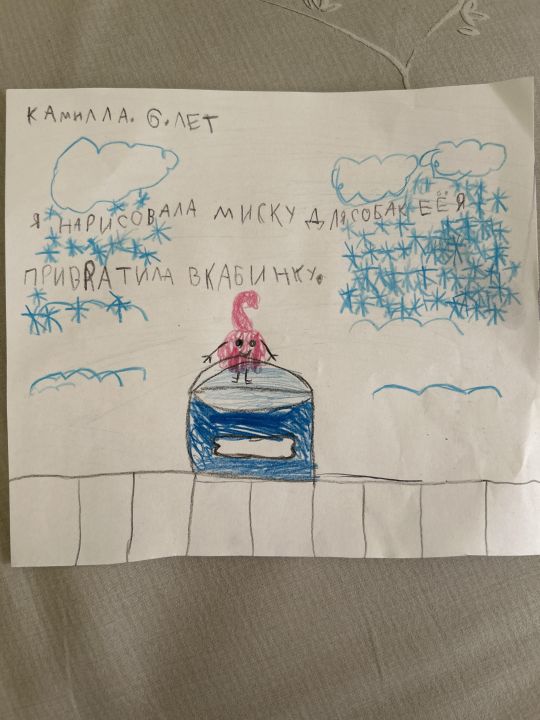 КАМИЛЛА. 6. ЛЕТ
Я НАРИСОВАЛА МИСКУ ДЛЯСОБАК ЕЁ Я
ПРИВРАТИЛА ВКАБИНКУ.